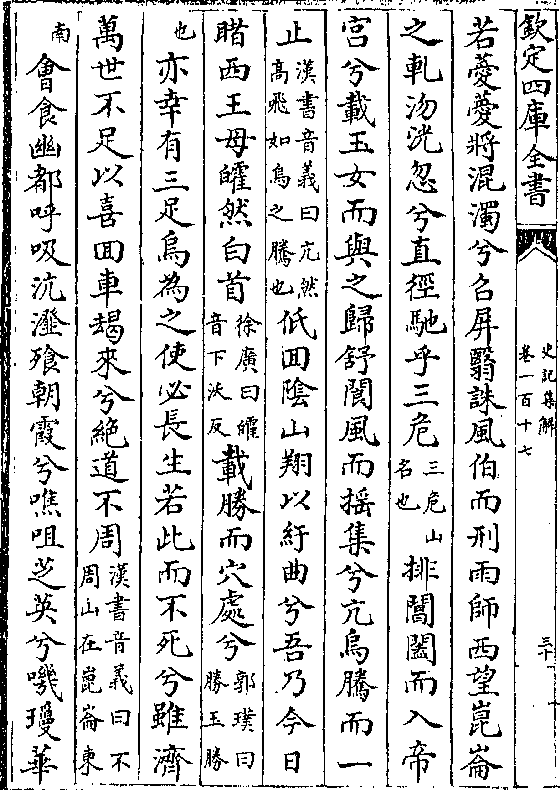 欽定四庫全書
史記集解
卷一百十七
三十
若薆薆將混濁兮召屏翳誅風伯而刑雨師西望崑崙
之軋沕洸忽兮直徑馳乎三危三危山名也排閶闔而入帝
宮兮載玉女而與之歸舒閬風而搖集兮亢烏騰而一
止漢書音義曰亢然高飛如烏之騰也低回陰山翔以紆曲兮吾乃今日
睹西王母皬然白首徐廣曰皬音下沃反載勝而穴處兮郭璞曰勝玉勝
也亦幸有三足烏為之使必長生若此而不死兮雖濟
萬世不足以喜回車朅來兮絕道不周漢書音義曰不周山在崑崙東
南會食幽都呼吸沆瀣飧朝霞兮噍咀芝英兮嘰瓊華